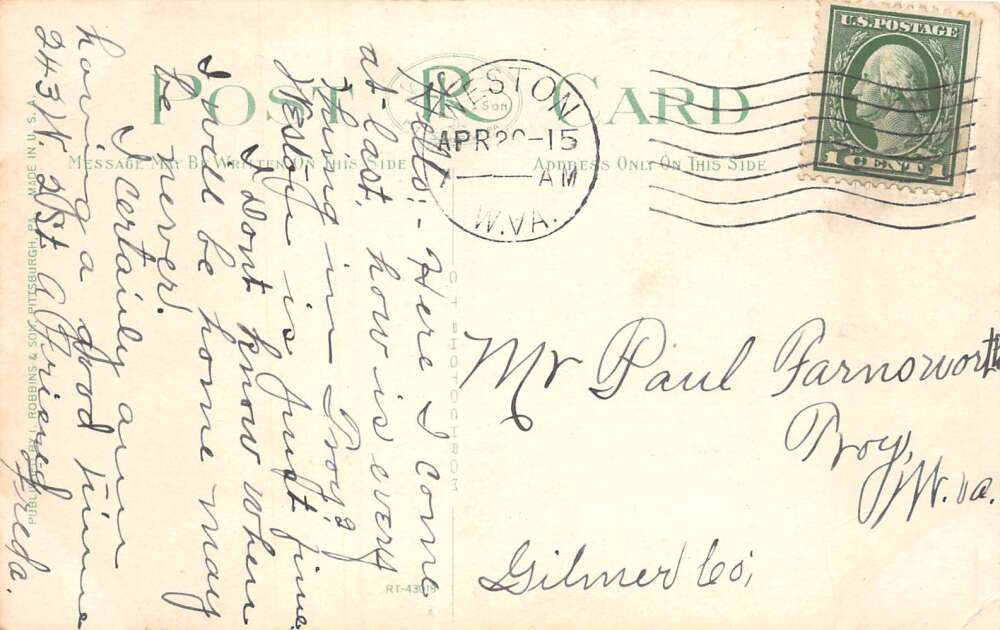 POST CARD
MESSAGE MAY BE WRITTEN ON THIS SIDE
ADDRESS ONLY ON THIS SIDE
U.S. POSTAGE
1 CENT 1
WESTON
APR 15
AM
W.VA.
Hello! - Here I come
at-last, how is every
thing in Troy?
Weston is just fine
I Dont know when
I will be home may
be never!
I certainly am
having a good time
243 N. 2St A Friend
Freda.
Mr Paul Farnsworth
Troy,
W. va.
Gilmer Co,
PUBLISHED BY I. ROBBINS & SON, PITTSBURGH, PA. MADE IN U.S.A.
RT-43018